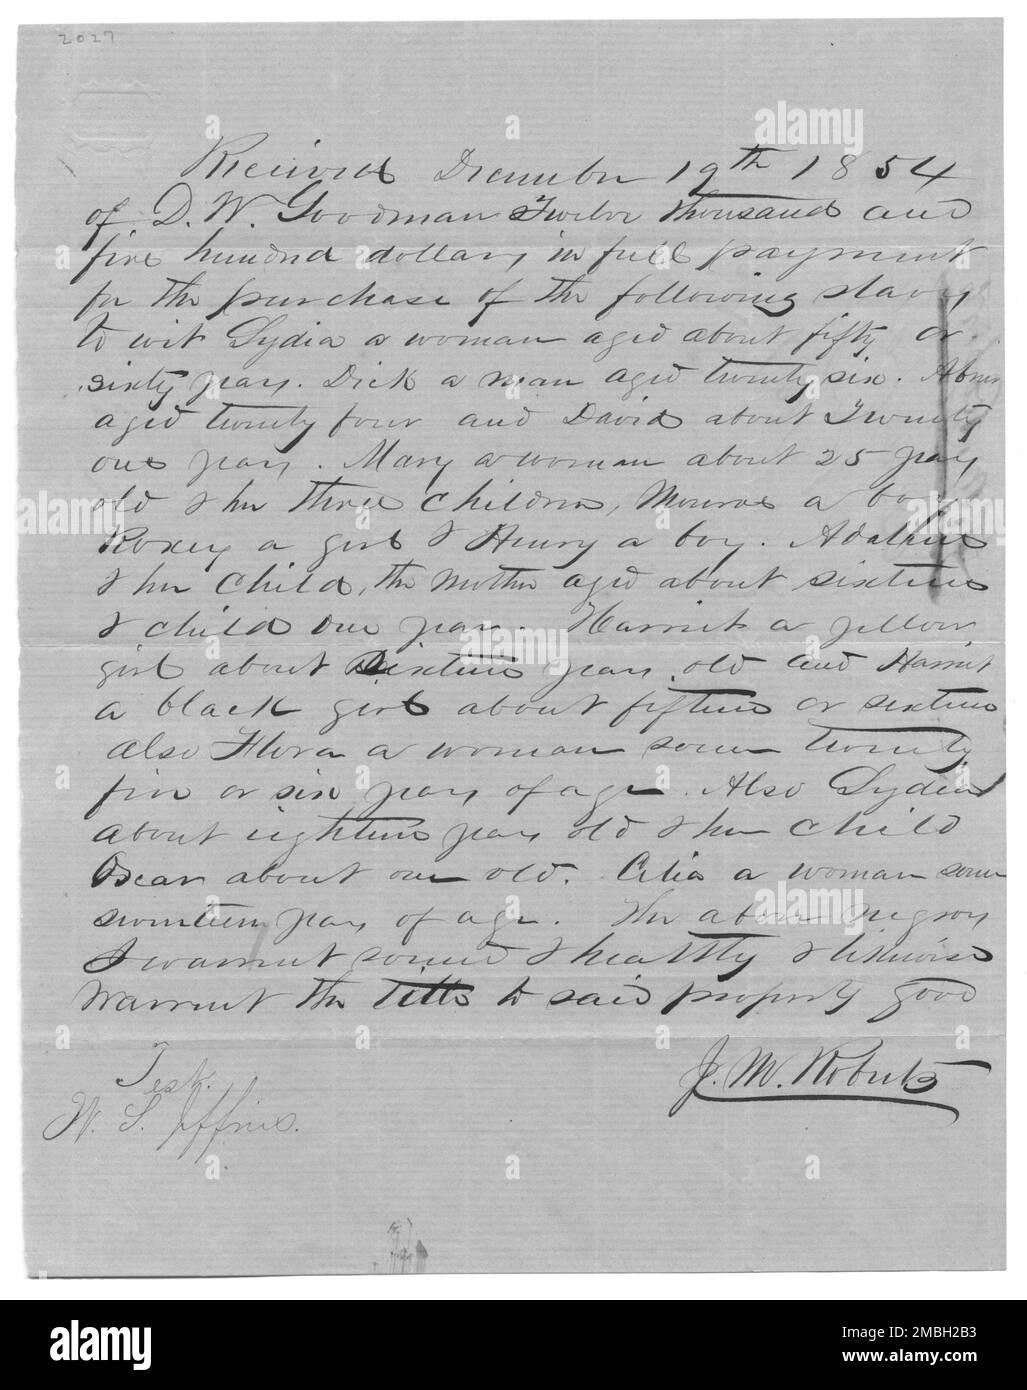 2027
Received December 19th 1854
of D. W. Goodman Twelve thousand and
five hundred dollars in full payment
for the purchase of the following slaves
to wit Lydia a woman aged about fifty or
sixty years. Dick a man aged twenty six. Abner
aged twenty four and David about Twenty
one years. Mary a woman about 25 years
old & her three children, Monroe a boy
Roxey a girl & Henry a boy. Adaline
& her child, the mother aged about sixteen
& child one year. Harriet a yellow
girl about Sixteen years old and Harriet
a black girl about fifteen or sixteen
also Flora a woman some twenty
five or six years of age. Also Lydia
about eighteen years old & her child
Oscar about one old. Celia a woman some
seventeen years of age. The above negroes
I warrent sound & healthy & likewise
warrent the title to said property good
J. M. Roberts
Test.
W. S. Jeffries.
alamy
Image ID: 2MBH2B3
www.alamy.com